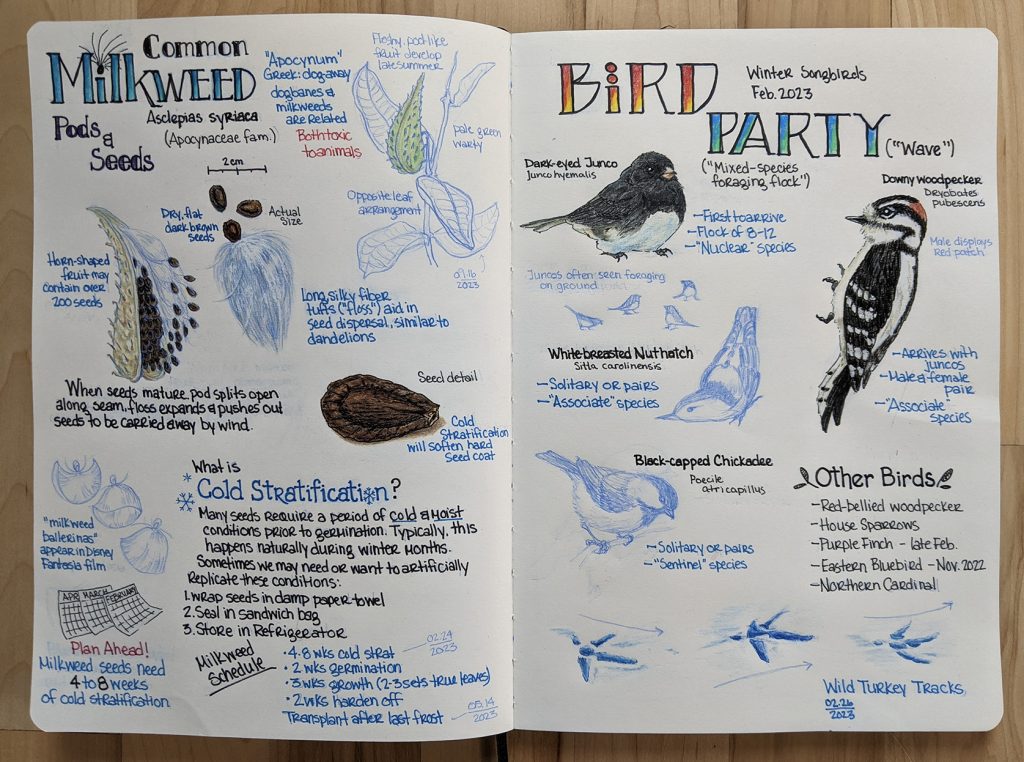 Common
Milkweed
Pods &
Seeds
Asclepias syriaca
(Apocynaceae fam.)
2 cm
"Apocynum"
Greek: dog-away
dogbanes &
milkweeds
are related
Both toxic
to animals
Fleshy, pod-like
fruit develop
late summer
pale green
warty
Opposite leaf
arrangement
07.16
2023
Dry, flat
dark brown
seeds
Actual
size
Horn-shaped
fruit may
contain over
200 seeds
Long silky fiber
tufts ("floss") aid in
seed dispersal, similar to
dandelions
When seeds mature, pod splits open
along seam, floss expands & pushes out
seeds to be carried away by wind.
Seed detail
Cold
Stratification
will soften hard
seed coat
"milkweed
ballerinas"
appear in Disney
Fantasia film
APR MARCH FEBRUARY
Plan Ahead!
Milkweed seeds need
4 to 8 weeks
of cold stratification
What is
Cold Stratification?
Many seeds require a period of cold & moist
conditions prior to germination. Typically, this
happens naturally during winter months.
Sometimes we may need or want to artificially
Replicate these conditions:
1. wrap seeds in damp paper towel
2. Seal in sandwich bag
3. Store in Refrigerator
Milkweed
Schedule
02.24
2023
• 4-8 wks cold strat
• 2 wks germination
• 3 wks growth (2-3 sets true leaves)
• 2 wks harden off
Transplant after last frost
05.14
2023
BiRD
PARTY
Winter Songbirds
Feb. 2023
("Wave")
("Mixed-species
foraging flock")
Dark-eyed Junco
Junco hyemalis
- First to arrive
- Flock of 8-12
- "Nuclear" species
Juncos often seen foraging
on ground
Downy woodpecker
Dryobates
pubescens
Male displays
Red patch
- Arrives with
juncos
- Male & female
pair
- "Associate"
species
White-breasted Nuthatch
Sitta carolinensis
- Solitary or pairs
- "Associate" species
Black-capped Chickadee
Poecile
atricapillus
- Solitary or pairs
- "Sentinel" species
Other Birds
- Red-bellied woodpecker
- House Sparrows
- Purple Finch - late Feb.
- Eastern Bluebird - Nov. 2022
- Northern Cardinal
Wild Turkey Tracks
02.26
2023